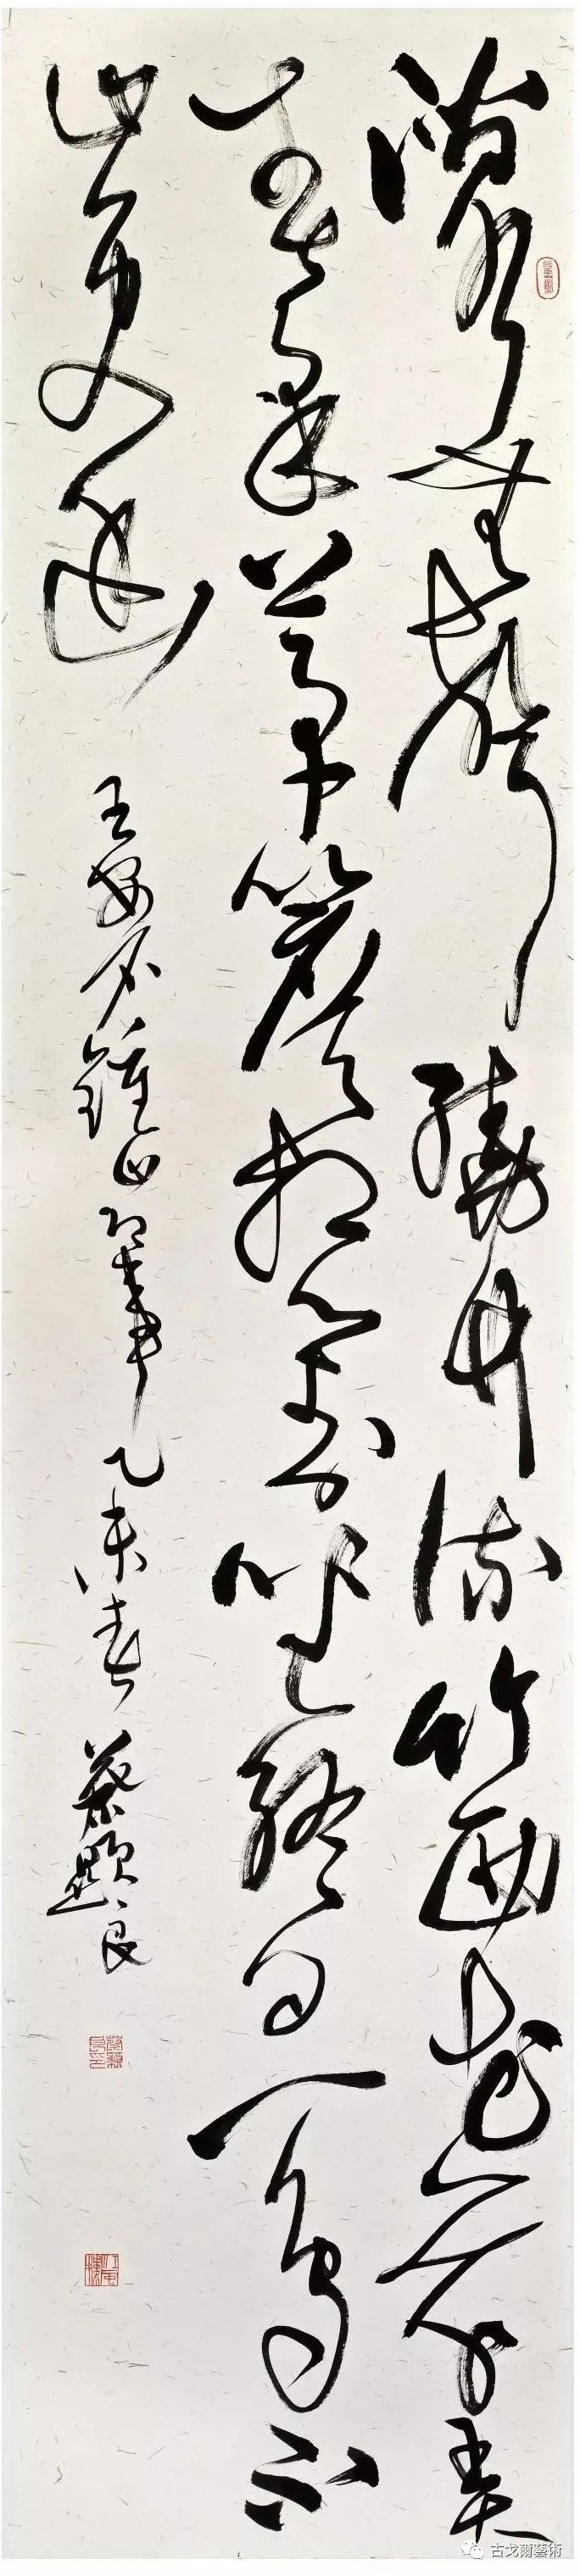 澗水無聲繞竹流竹西花草弄
春柔茅簷相對坐終日一鳥不
山更幽
王安石鍾山即事乙未春蔡顯良
古戈爾藝術